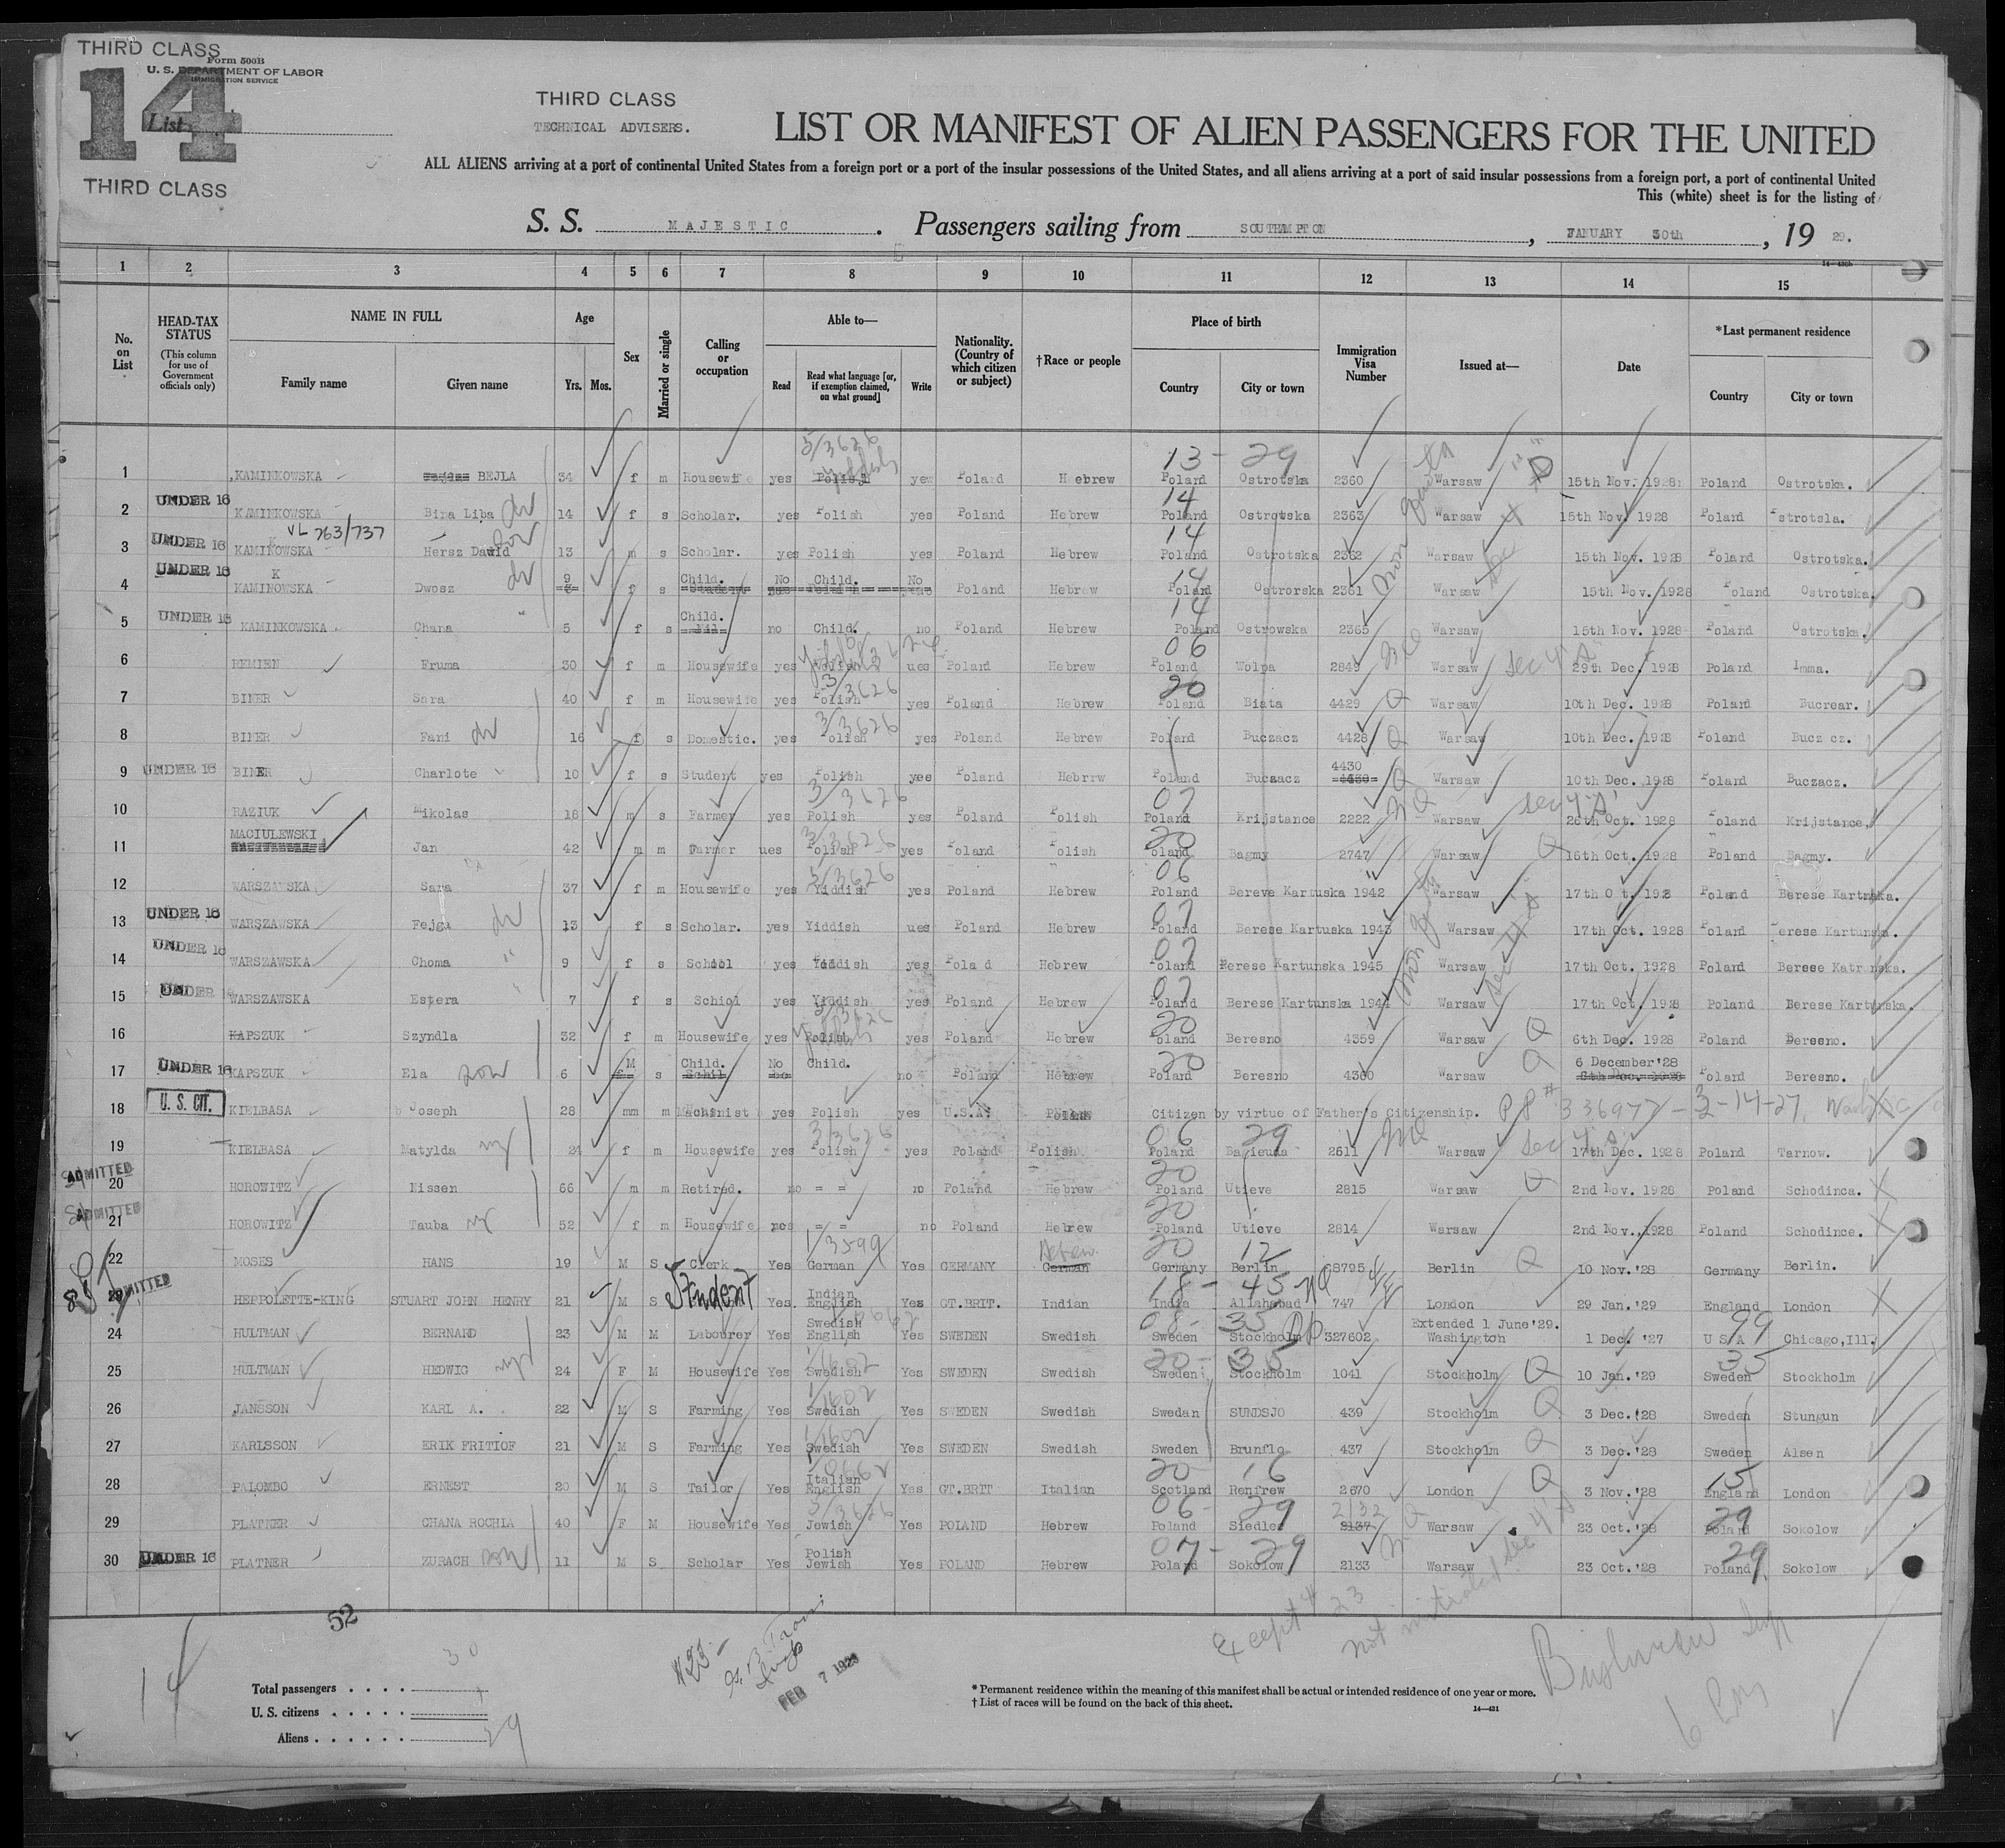 THIRD CLASS
Form 500B
U. S. DEPARTMENT OF LABOR
IMMIGRATION SERVICE
14
List
THIRD CLASS
THIRD CLASS
TECHNICAL ADVISERS.
LIST OR MANIFEST OF ALIEN PASSENGERS FOR THE UNITED
ALL ALIENS arriving at a port of continental United States from a foreign port or a port of the insular possessions of the United States, and all aliens arriving at a port of said insular possessions from a foreign port, a port of continental United
This (white) sheet is for the listing of
S. S. MAJESTIC. Passengers sailing from SOUTHAMPTON, JANUARY 30th, 19 29.
1 2 3 4 5 6 7 8 9 10 11 12 13 14 15
No. on List
HEAD-TAX STATUS
(This column for use of Government officials only)
NAME IN FULL
Family name Given name
Age
Yrs. Mos.
Sex
Married or single
Calling or occupation
Able to—
Read
Read what language [or, if exemption claimed, on what ground]
Write
Nationality. (Country of which citizen or subject)
†Race or people
Place of birth
Country City or town
Immigration Visa Number
Issued at—
Date
*Last permanent residence
Country City or town
5/3626 13 - 29
1 KAMINKOWSKA BEJLA 34 f m Housewife yes Polish Yiddish yew Poland Hebrew Poland Ostrotska 2360 Warsaw 15th Nov. 1928 Poland Ostrotska.
2 UNDER 16 KAMINKOWSKA Bina Liba 14 f s Scholar. yes Polish yes Poland Hebrew 14 Poland Ostrotska 2363 Warsaw 15th Nov 1928 Poland strotsla.
VL 763/737
3 UNDER 16 KAMINOWSKA Hersz Dawid 13 m s Scholar. yes Polish yes Poland Hebrew 14 Poland Ostrotska 2362 Warsaw 15th Nov. 1928 Poland Ostrotska.
4 UNDER 16 KAMINOWSKA K Dwosz 9 f s Child. No Child. No Poland Hebrew 14 Poland Ostrorska 2361 Warsaw 15th Nov. 1928 Poland Ostrotska.
5 UNDER 16 KAMINKOWSKA Chana 5 f s Child. no Child. no Poland Hebrew 14 Poland Ostrowska 2365 Warsaw 15th Nov. 1928 Poland Ostrotska.
6 REMIEN Fruma 30 f m Housewife yes Polish ues Poland Hebrew 06 Poland Wolpa 2849 Warsaw 29th Dec. 1928 Poland Imma.
7 BINER Sara 40 f m Housewife yes Polish 3/3626 yes Poland Hebrew 20 Poland Biata 4429 Q Warsaw 10th Dec. 1928 Poland Bucrear.
8 BINER Fani 16 f s Domestic. yes Polish 3/3626 yes Poland Hebrew Poland Buczacz 4428 Q Warsaw 10th Dec. 1928 Poland Bucz cz.
9 UNDER 16 BINER Charlote 10 f s Student yes Polish yes Poland Hebrrw Poland Bucaacz 4430 4430 Q Warsaw 10th Dec. 1928 Poland Buczacz.
10 RAZIUK Mikolas 18 m s Farmer yes Polish 3/3626 yes Poland Polish 07 Poland Krijstance 2222 Warsaw 26th Oct. 1928 Poland Krijstance.
11 MACIULEWSKI Jan 42 m m Farmer ues Polish 3/3626 yes Poland Polish 20 oland Bagmy 2747 Warsaw Q 16th Oct. 1928 Poland Bagmy.
12 WARSZAWSKA Sara 37 f m Housewife yes Yiddish 5/3626 yes Poland Hebrew 06 Poland Bereve Kartuska 1942 Warsaw 17th O t. 1928 Poland Berese Kartnska.
13 UNDER 16 WARSZAWSKA Fejga 13 f s Scholar. yes Yiddish ues Poland Hebrew 07 Poland Berese Kartuska 1943 Warsaw 17th Oct. 1928 Poland erese Kartunska.
14 UNDER 16 WARSZAWSKA Choma 9 f s School yes Yiddish yes Pola d Hebrew 07 Poland Berese Kartunska 1945 Warsaw 17th Oct. 1928 Poland Berese Katrnska.
15 UNDER 16 WARSZAWSKA Estera 7 f s Schiol yes Yiddish yes Poland Hebrew 07 Poland Berese Kartunska 1944 Warsaw 17th Oct. 1928 Poland Berese Kartunska.
16 KAPSZUK Szyndla 32 f m Housewife yes Polish yes Poland Hebrew 20 oland Beresno 4359 Warsaw Q 6th Dec. 1928 Poland Beresno.
17 UNDER 16 KAPSZUK Ela son 6 M s Child. No Child. no Poland Hebrew 20 Poland Beresno 4360 Warsaw Q 6 December '28 6th Dec. 1928 Poland Beresno.
18 U. S. CIT. KIELBASA Joseph 28 mm m Machinist yes Polish yes U.S.A. Citizen by virtue of Father's Citizenship. PP# 336977 - 3-14-27, Wash DC
19 KIELBASA Matylda 24 f m Housewife yes Polish 3/3626 yes Poland Polish 06 29 Poland Bazieuda 2611 Warsaw 17th Dec. 1928 Poland Tarnow.
20 ADMITTED HOROWITZ Nissen 66 m m Retired. no = = no Poland Hebrew 20 Poland Utieve 2815 Warsaw Q 2nd Nov. 1928 Poland Schodinca.
21 ADMITTED HOROWITZ Tauba 52 f m Housewife = = no Poland Hebrew 20 Poland Utieve 2814 Warsaw 2nd Nov. 1928 Poland Schodince.
22 MOSES HANS 19 M S Clerk Yes German 1/3599 Yes GERMANY German Hebrew 20 12 Germany Berlin 68795 Berlin Q 10 Nov.'28 Germany Berlin.
ADMITTED HEPPOLETTE-KING STUART JOHN HENRY 21 M S Student Yes Indian English Yes GT.BRIT. Indian 18 - 45 India Allahabad 747 London 29 Jan.'29 England London
24 HULTMAN BERNARD 23 M M Labourer Yes Swedish English Yes SWEDEN Swedish 08 - 35 Sweden Stockholm PP 327602 Extended 1 June'29. Washington 1 Dec. '27 99 U S A Chicago,Ill.
25 HULTMAN HEDWIG 24 F M Housewife Yes Swedish 1/1602 Yes SWEDEN Swedish 20 - 35 Sweden Stockholm 1041 Stockholm Q 10 Jan.'29 35 Sweden Stockholm
26 JANSSON KARL A. 22 M S Farming Yes Swedish 1/1602 Yes SWEDEN Swedish Swedan SUNDSJO 439 Stockholm Q 3 Dec.'28 Sweden Stungun
27 KARLSSON ERIK FRITIOF 21 M S Farming Yes Swedish 1/1602 Yes SWEDEN Swedish Sweden Brunflo 437 Stockholm Q 3 Dec.'28 Sweden Alsen
28 PALOMBO ERNEST 20 M S Tailor Yes Italian English Yes GT.BRIT Italian 20 16 Scotland Renfrew 2670 London Q 3 Nov.'28 15 England London
29 PLATNER CHANA ROCHLA 40 F M Housewife Yes Jewish 5/3626 Yes POLAND Hebrew 06 - 29 Poland Siedlec 2132 Warsaw 23 Oct.'28 29 Poland Sokolow
30 UNDER 16 PLATNER ZURACH son 11 M S Scholar Yes Polish Jewish Yes POLAND Hebrew 07 - 29 Poland Sokolow 2133 Warsaw 23 Oct.'28 29 Poland Sokolow
52
14
Total passengers . . . . 30
U. S. citizens . . . . . 1
Aliens . . . . . . 29
FEB 7 1929
Except 4 23
not initialed
* Permanent residence within the meaning of this manifest shall be actual or intended residence of one year or more.
† List of races will be found on the back of this sheet.
14—431